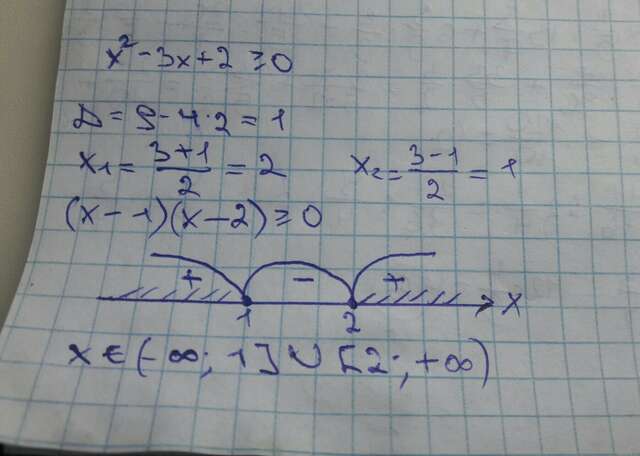 x² - 3x + 2 ≥ 0
D = 9 - 4·2 = 1
x₁ = (3+1)/2 = 2    x₂ = (3-1)/2 = 1
(x - 1)(x - 2) ≥ 0
+ - +
1 2 x
x ∈ (-∞; 1] ∪ [2; +∞)